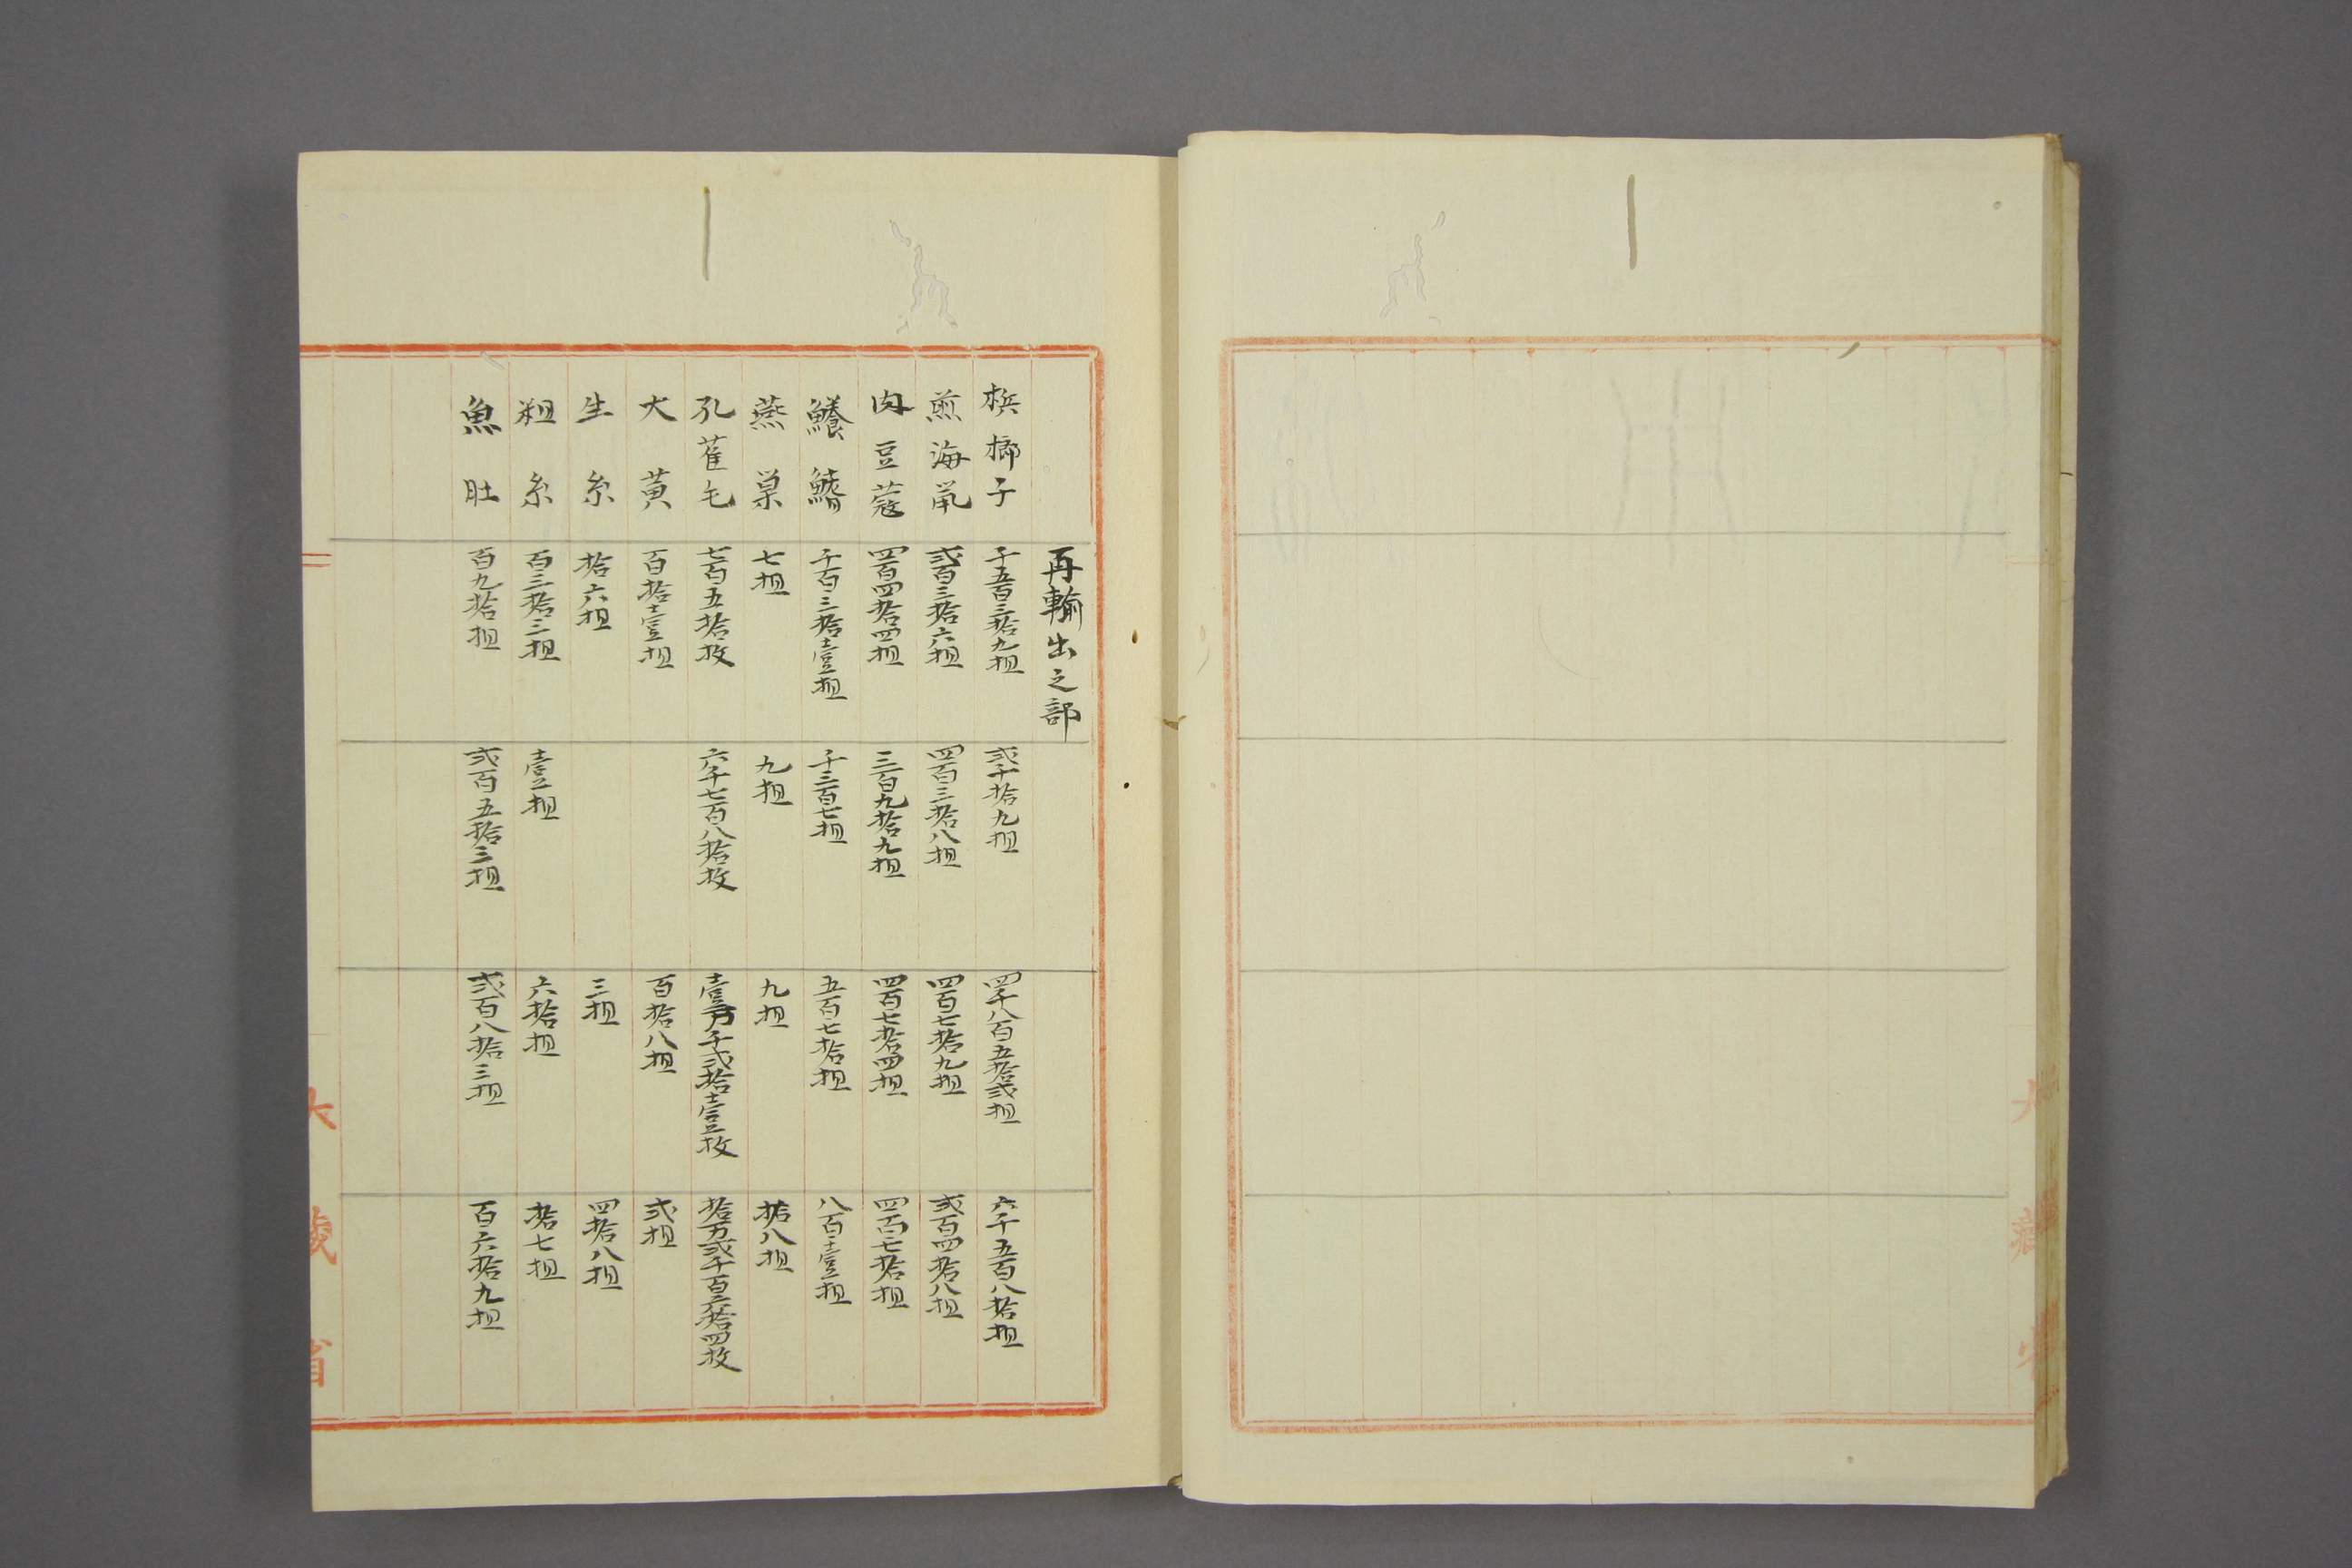 再輸出之部
梹榔子 千五百三拾九担 弐千拾九担 四千八百五拾弐担 六千五百八拾担
煎海鼠 弐百三拾六担 四百三拾八担 四百七拾九担 弐百四拾八担
肉豆蔻 四百四拾四担 三百九拾九担 四百七拾四担 四百七拾担
鱶鰭 千百三拾壹担 千三百七担 五百七拾担 八百壹担
燕巣 七担 九担 九担 拾八担
孔雀毛 七百五拾枚 六千七百八拾枚 壹万千弐拾壹枚 拾万弐千百六拾四枚
大黄 百拾壹担 百拾八担 弐担
生糸 拾六担 三担 四拾八担
粗糸 百三拾三担 壹担 六拾担 拾七担
魚肚 百九拾担 弐百五拾三担 弐百八拾三担 百六拾九担
大藏省